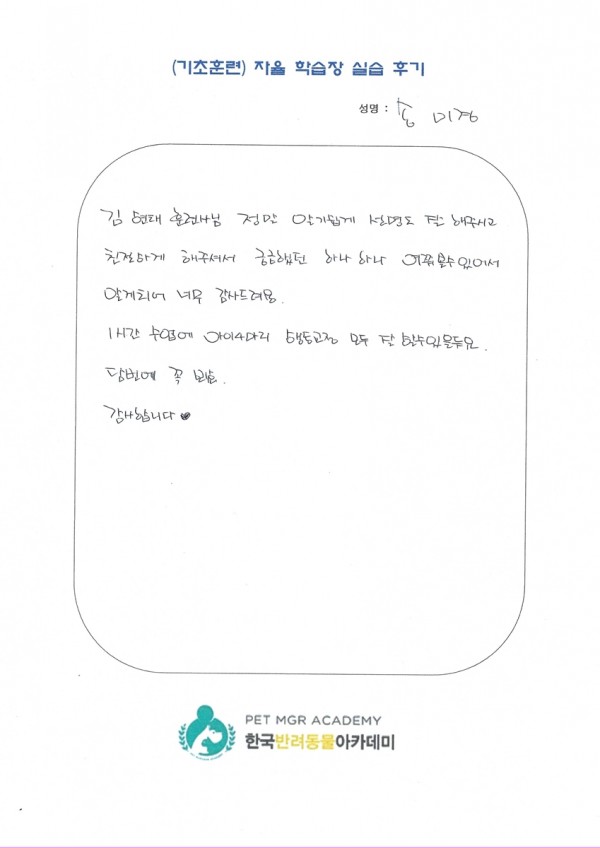 (기초훈련) 자율 학습장 실습 후기
성명 : 송 미정
김 현태 훈련사님 정말 알기쉽게 설명도 잘 해주시고
친절하게 해주셔서 궁금했던 하나 하나 여쭤볼수있어서
알게되어 너무 감사드려용.
1시간 수업에 아이4마리 행동교정 모두 잘 할수있을듯요.
담번에 꼭
감사합니다 ♥
PET MGR ACADEMY
한국반려동물아카데미